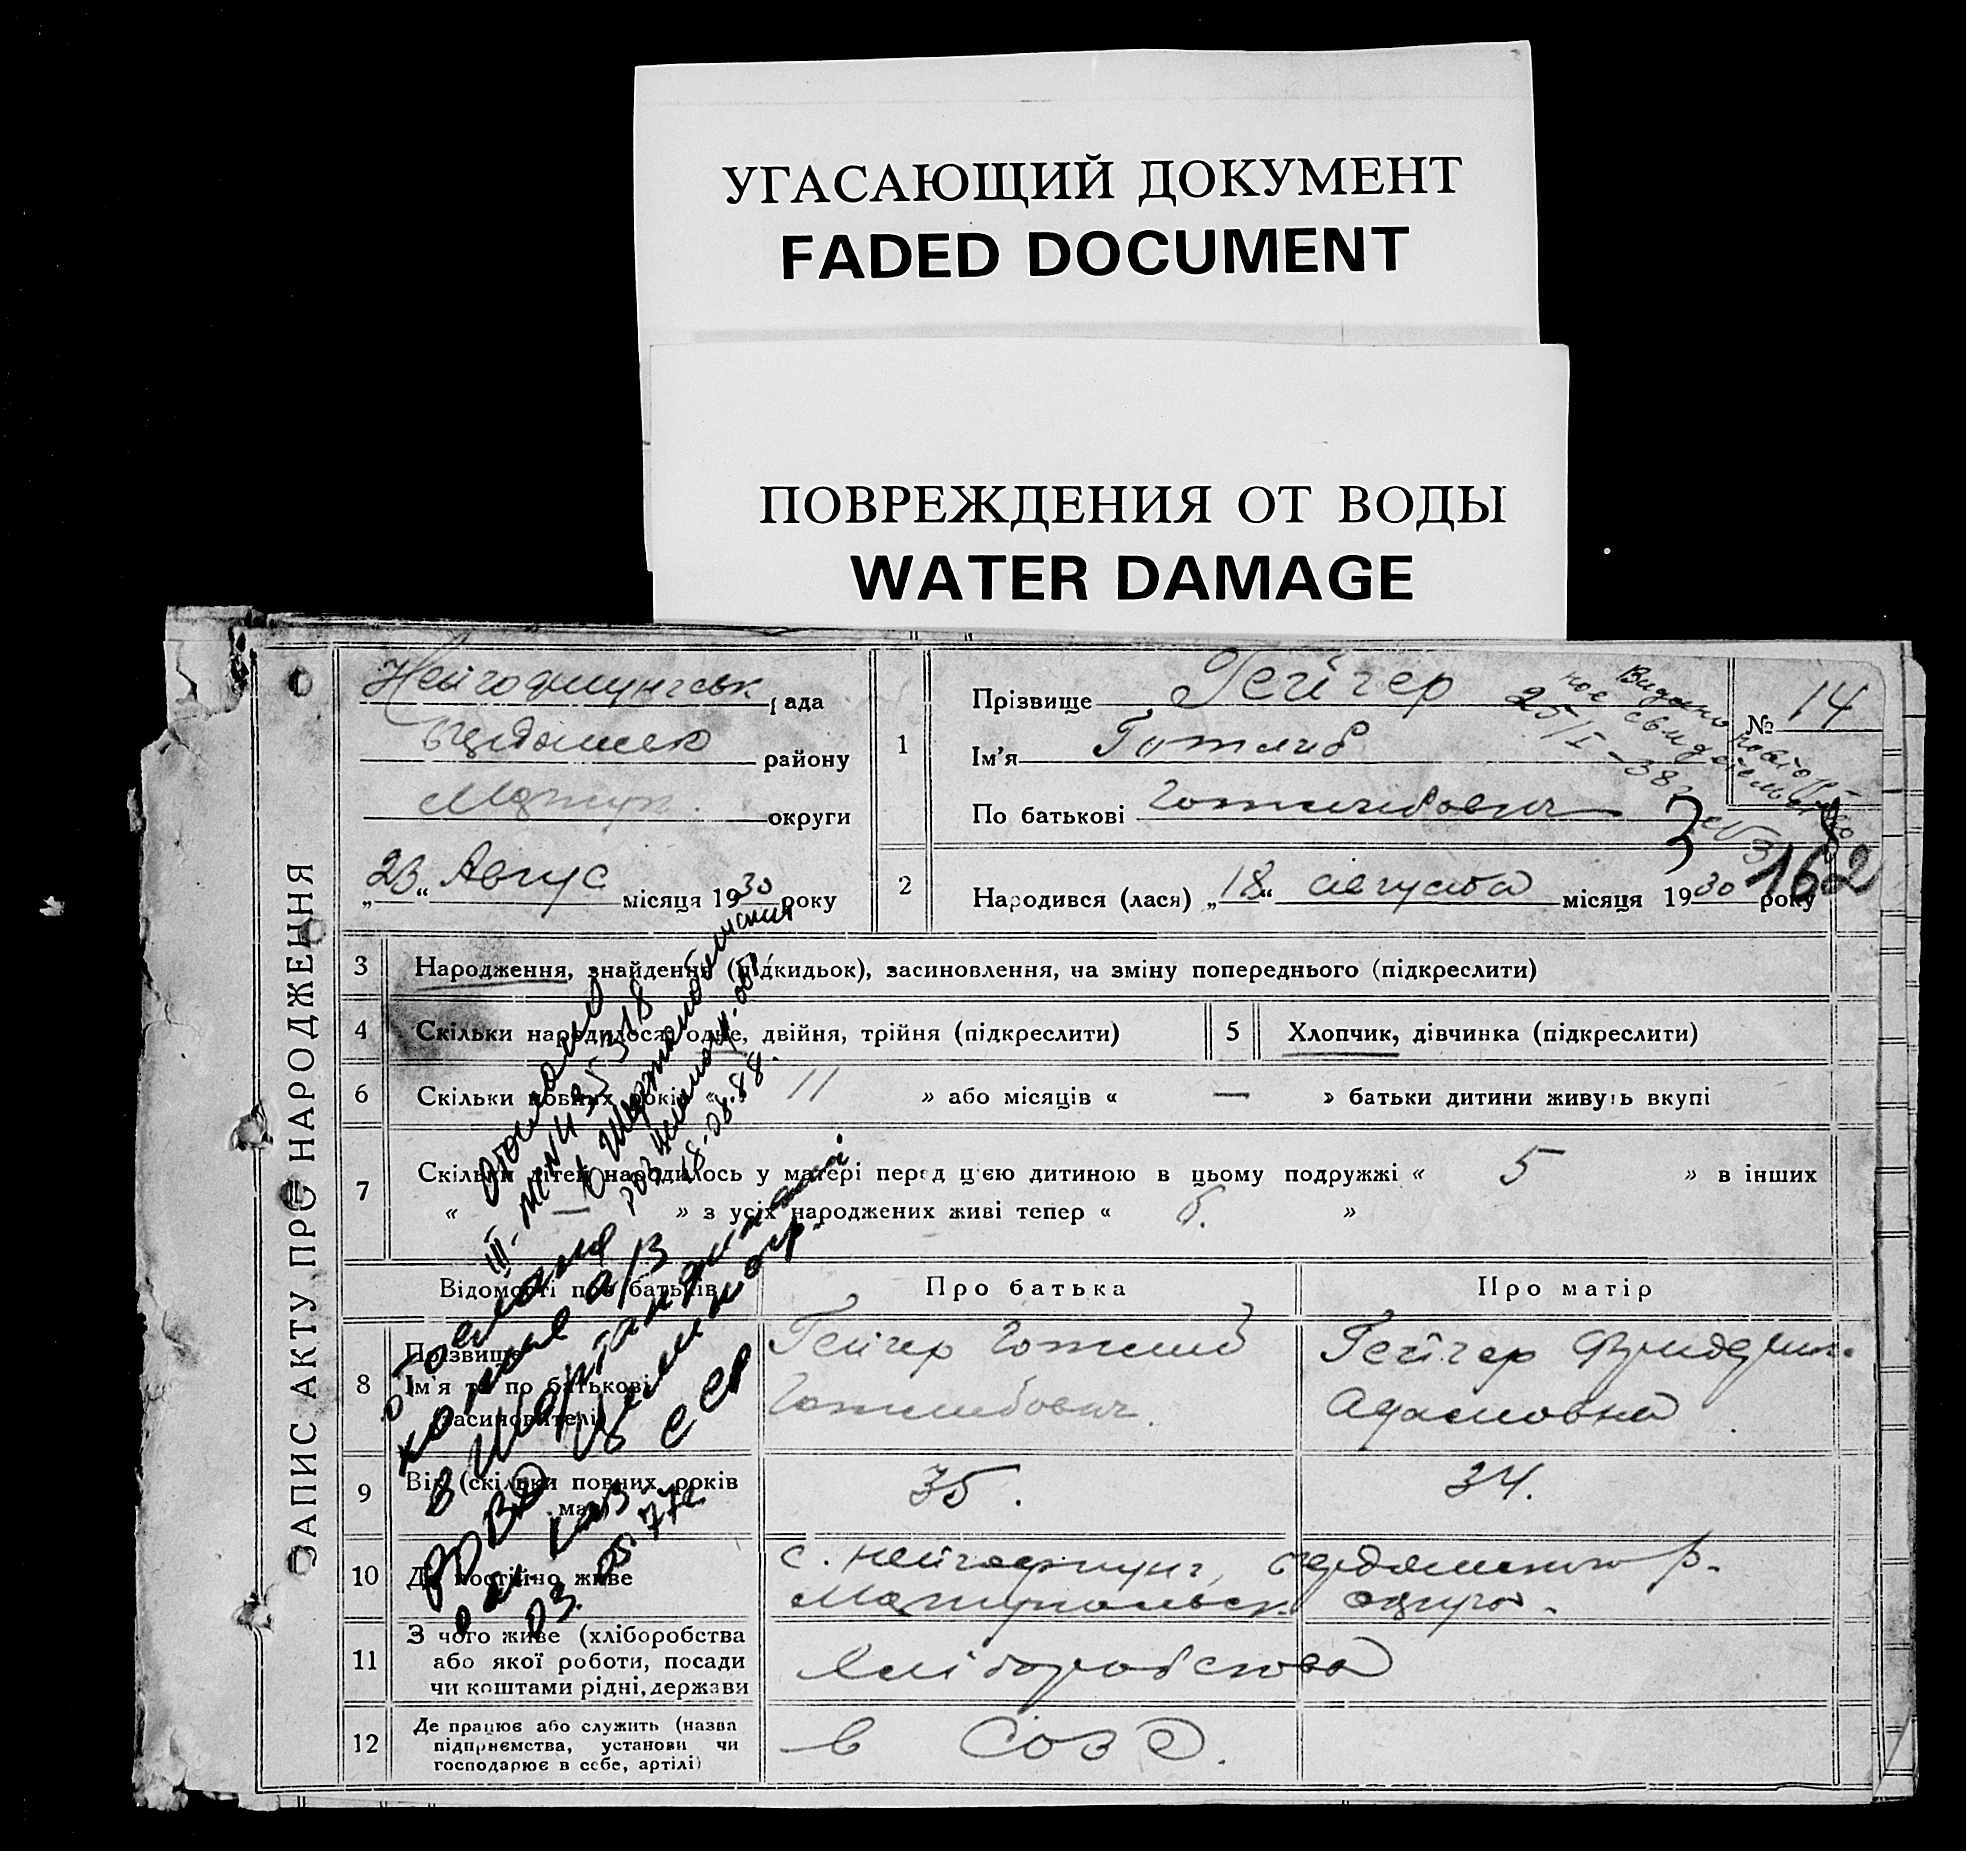 УГАСАЮЩИЙ ДОКУМЕНТ
FADED DOCUMENT
ПОВРЕЖДЕНИЯ ОТ ВОДЫ
WATER DAMAGE
ЗАПИС АКТУ ПРО НАРОДЖЕННЯ
рада
району
округи
„23“ Авгус місяця 1930 року
1
Прізвище Гейгер
Ім'я Готлиб
По батькові Готлибович
№ 14
Видано повторное свидетельство
25/I-38
162
2
Народився (лася) „18“ августа місяця 1930 року
3 Народження, знайдення (підкидьок), засиновлення, на зміну попереднього (підкреслити)
4 Скільки народилося: одне, двійня, трійня (підкреслити)
5 Хлопчик, дівчинка (підкреслити)
6 Скільки повних років « 11 » або місяців « — » батьки дитини живуть вкупі
7 Скільки дітей народилось у матері перед цією дитиною в цьому подружжі « 5 » в інших
« — » з усіх народжених живі тепер « 5. »
Відомості про батьків
Про батька
Про матір
8 Прізвище
Ім'я та по батькові
засиновителів
Гейгер Готлиб
Готлибович.
Гейгер
Адамовна
9 Вік (скільки повних років
має)
35.
34.
10 Де постійно живе
с.
11 З чого живе (хліборобства
або якої роботи, посади
чи коштами рідні, держави
хліборобства
12 Де працює або служить (назва
підприємства, установи чи
господарює в себе, артілі)
в СОЗ
отослано
18.08.88.
отослано
копие а/з
в
РОВД
Каз ССР
03.05.77г.